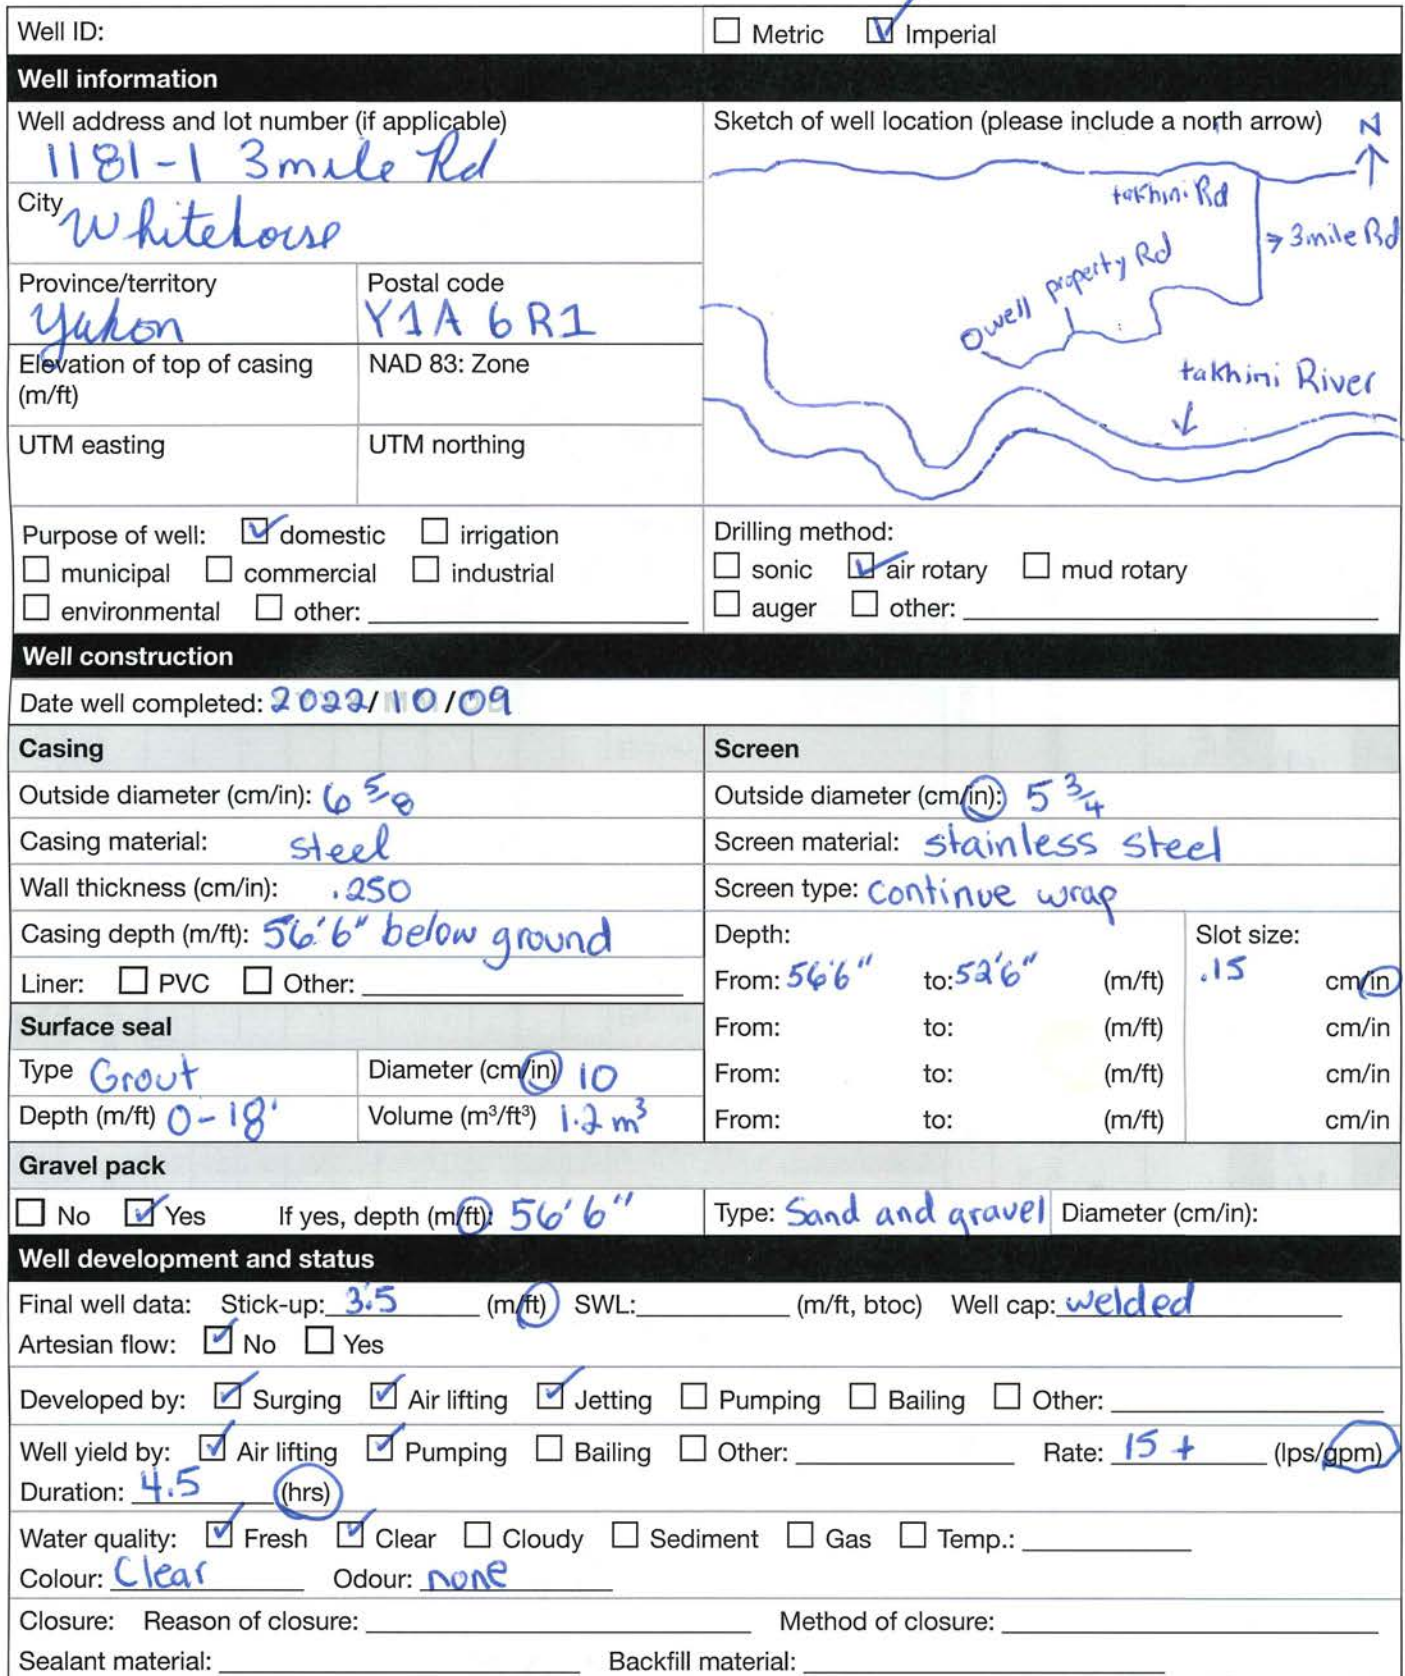 Well ID: ☐ Metric ☑ Imperial
Well information
Well address and lot number (if applicable)
1181-1 3mile Rd
City Whitehorse
Province/territory Yukon
Postal code Y1A 6R1
Elevation of top of casing (m/ft)
NAD 83: Zone
UTM easting
UTM northing
Sketch of well location (please include a north arrow) N
takhini Rd
→ 3mile Rd
property Rd
well
takhini River
Purpose of well: ☑ domestic ☐ irrigation
☐ municipal ☐ commercial ☐ industrial
☐ environmental ☐ other:
Drilling method:
☐ sonic ☑ air rotary ☐ mud rotary
☐ auger ☐ other:
Well construction
Date well completed: 2022/10/09
Casing
Outside diameter (cm/in): 6 5/8
Casing material: steel
Wall thickness (cm/in): .250
Casing depth (m/ft): 56'6" below ground
Liner: ☐ PVC ☐ Other:
Surface seal
Type Grout
Diameter (cm/in) 10
Depth (m/ft) 0-18'
Volume (m³/ft³) 1.2 m³
Screen
Outside diameter (cm/in): 5 3/4
Screen material: stainless steel
Screen type: continue wrap
Depth: Slot size:
From: 56'6" to: 52'6" (m/ft) .15 cm/in
From: to: (m/ft) cm/in
From: to: (m/ft) cm/in
From: to: (m/ft) cm/in
Gravel pack
☐ No ☑ Yes If yes, depth (m/ft): 56'6" Type: Sand and gravel Diameter (cm/in):
Well development and status
Final well data: Stick-up: 3.5 (m/ft) SWL: (m/ft, btoc) Well cap: welded
Artesian flow: ☑ No ☐ Yes
Developed by: ☑ Surging ☑ Air lifting ☑ Jetting ☐ Pumping ☐ Bailing ☐ Other:
Well yield by: ☑ Air lifting ☑ Pumping ☐ Bailing ☐ Other: Rate: 15 + (lps/gpm)
Duration: 4.5 (hrs)
Water quality: ☑ Fresh ☑ Clear ☐ Cloudy ☐ Sediment ☐ Gas ☐ Temp.:
Colour: Clear Odour: none
Closure: Reason of closure: Method of closure:
Sealant material: Backfill material: